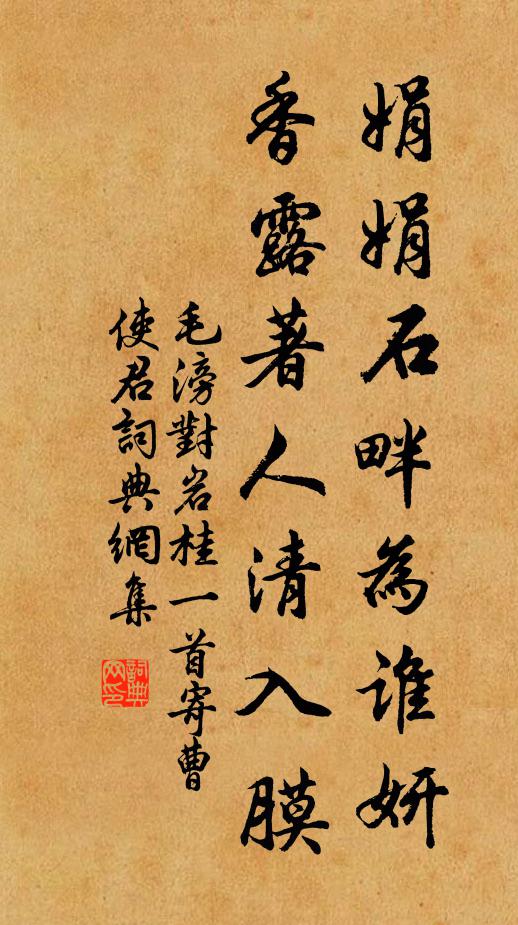 娟娟石畔為誰妍
香露著人清入膜
毛滂對岩桂一首寄曹
使君詞典網集
詞典
网印